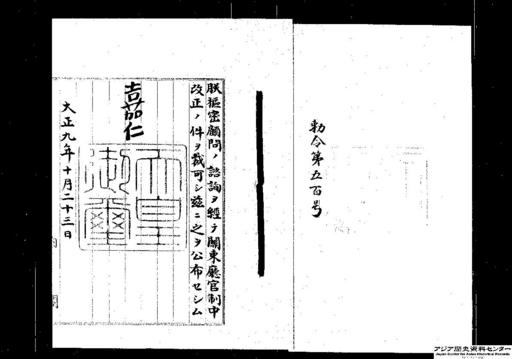 勅令第五百号
朕枢密顧問ノ諮詢ヲ経テ関東庁官制中
改正ノ件ヲ裁可シ茲ニ之ヲ公布セシム
嘉仁
天皇
御璽
大正九年十月二十三日
アジア歴史資料センター
Japan Center for Asian Historical Records